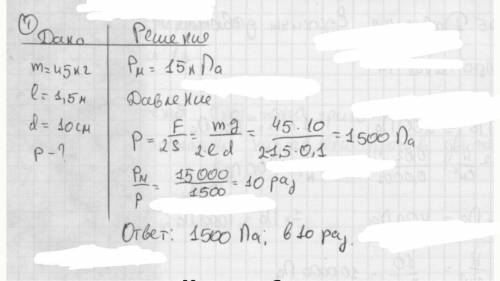 4
Дано
Решение
m=45кг
l=1,5м
d=10см
P-?
Pм=15кПа
Давление
P=F/2S=mg/2ld=45·10/2·1,5·0,1=1500 Па
Pм/P=15000/1500=10 раз
Ответ: 1500 Па; в 10 раз.